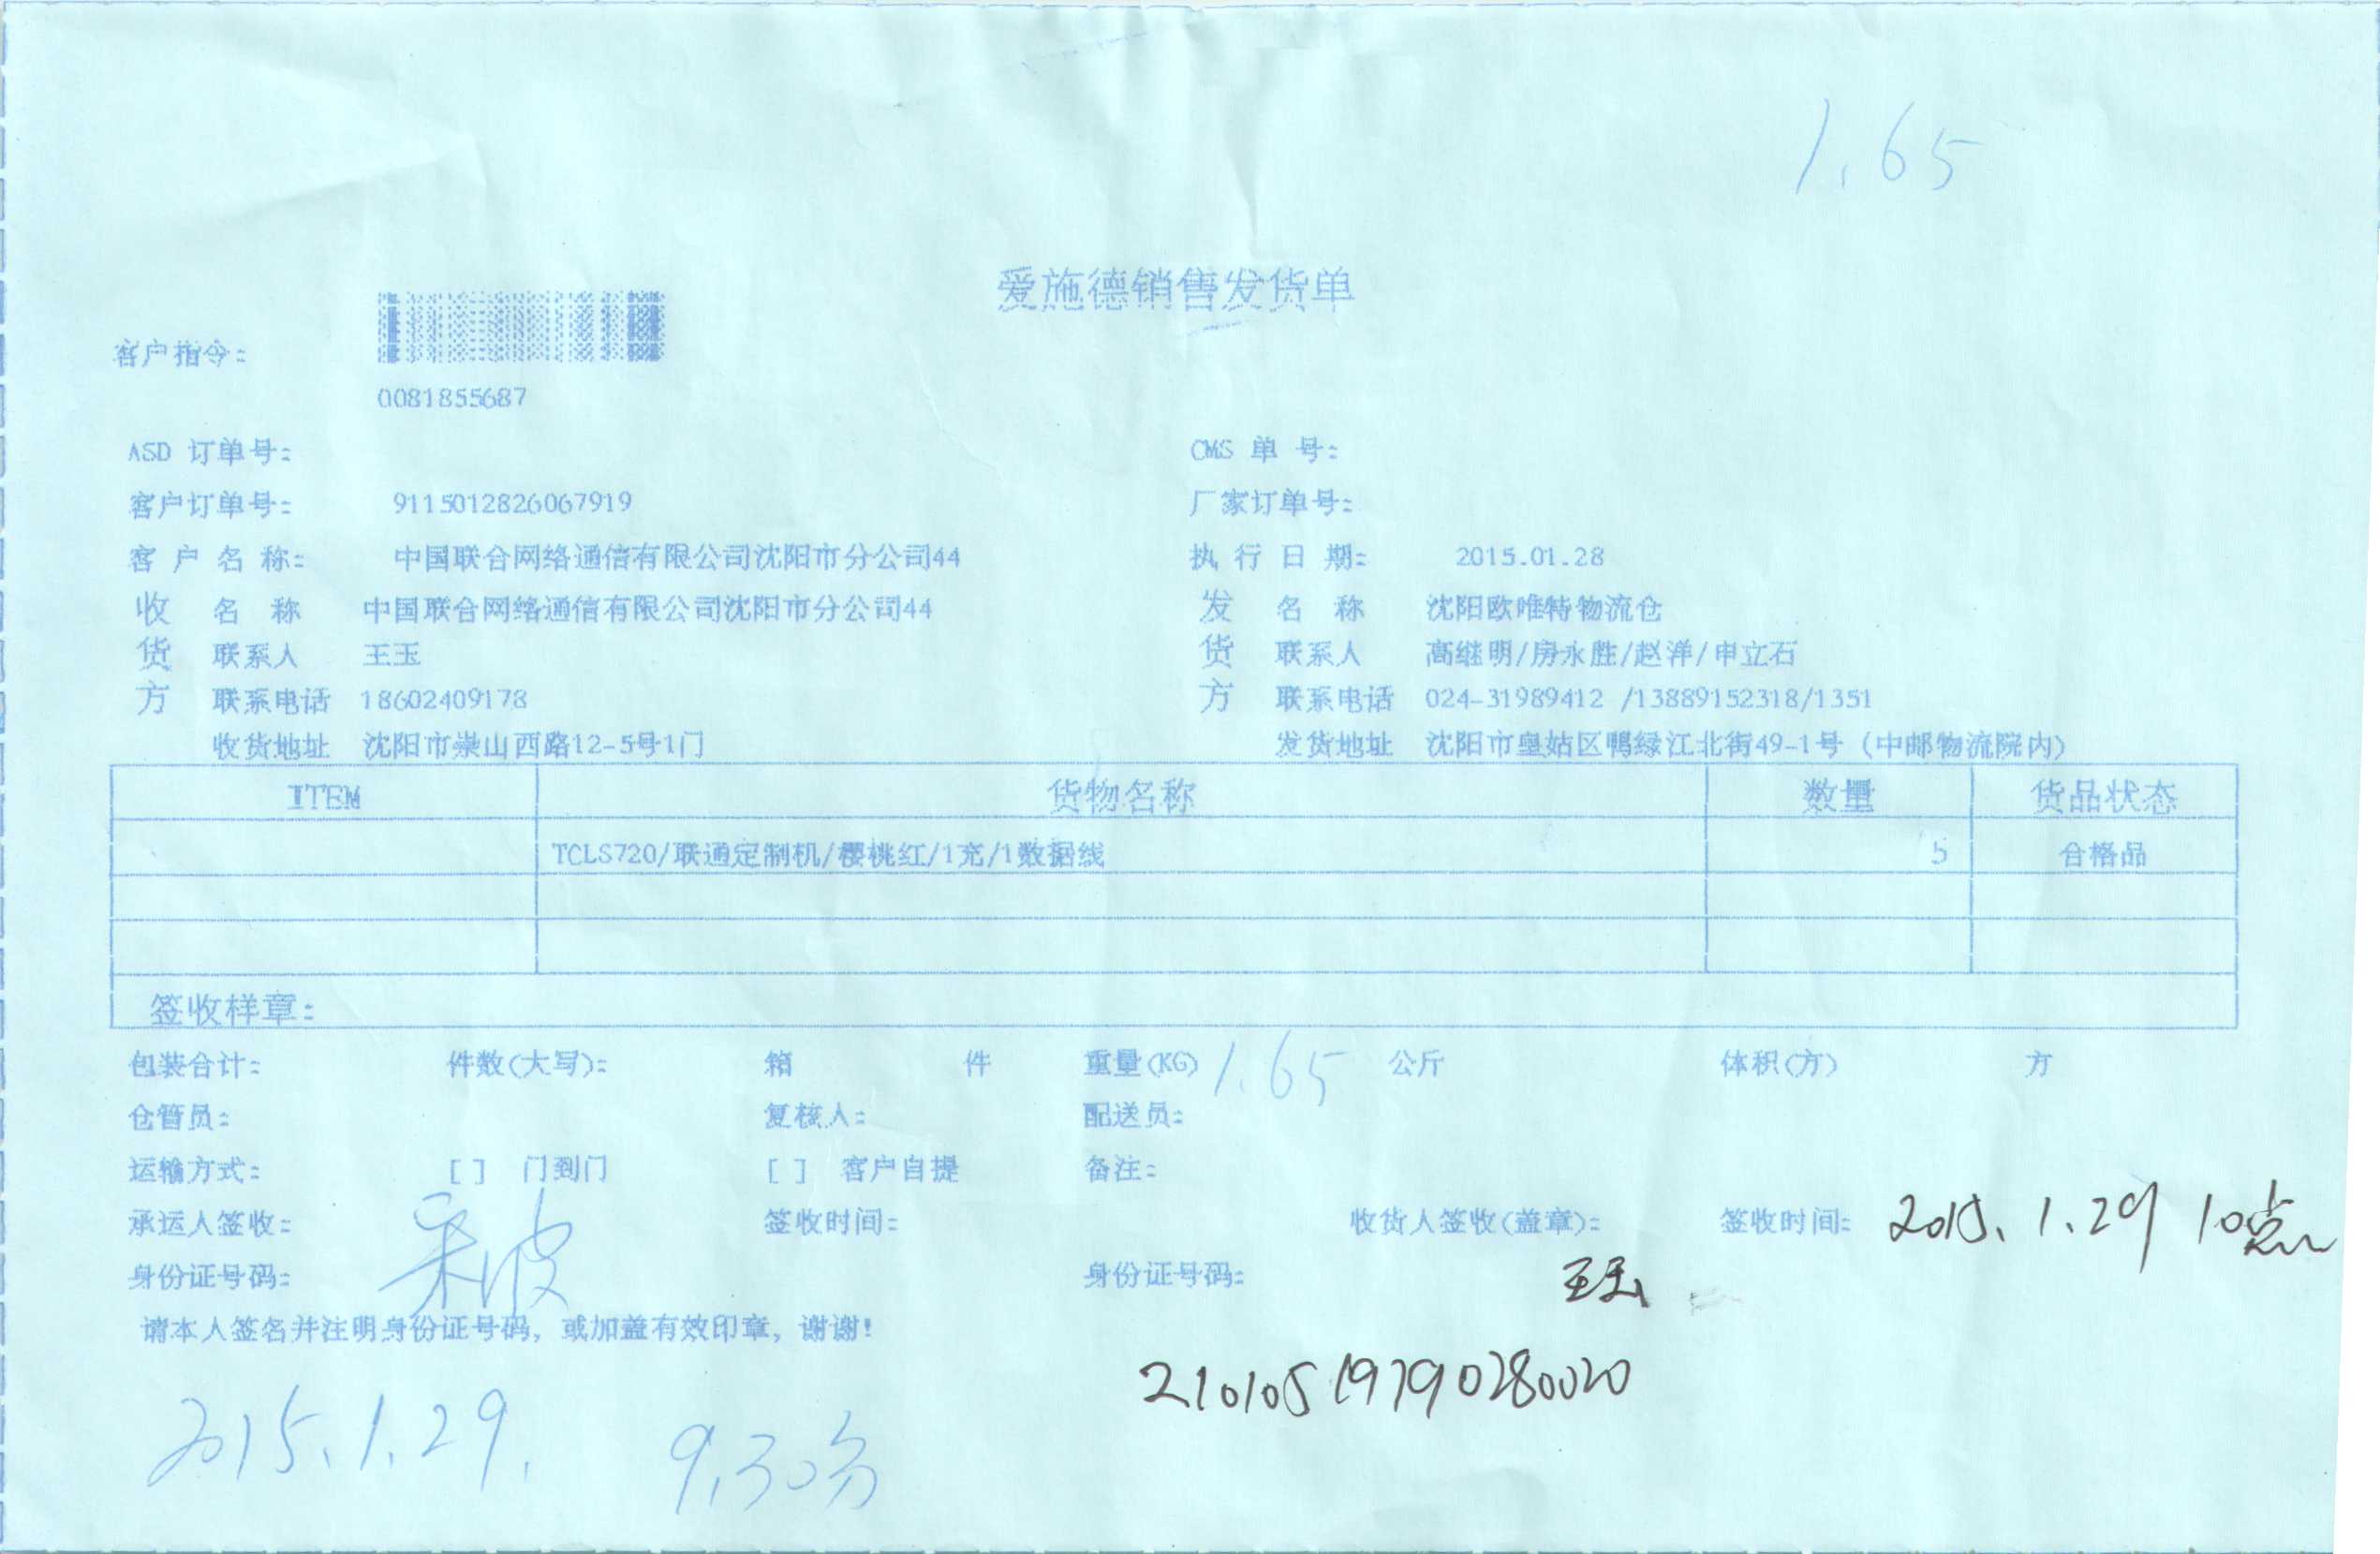 1.65
爱施德销售发货单
客户指令:
0081855687
ASD 订单号: CMS 单 号:
客户订单号: 9115012826067919 厂家订单号:
客 户 名 称: 中国联合网络通信有限公司沈阳市分公司44 执 行 日 期: 2015.01.28
收 名 称 中国联合网络通信有限公司沈阳市分公司44 发 名 称 沈阳欧唯特物流仓
货 联系人 王玉 货 联系人 高继明/房永胜/赵洋/申立石
方 联系电话 18602409178 方 联系电话 024-31989412 /13889152318/1351
收货地址 沈阳市崇山西路12-5号1门 发货地址 沈阳市皇姑区鸭绿江北街49-1号 (中邮物流院内)
ITEM 货物名称 数量 货品状态
TCLS720/联通定制机/樱桃红/1充/1数据线 5 合格品
签收样章:
包装合计: 件数(大写): 箱 件 重量(KG) 1.65 公斤 体积(方) 方
仓管员: 复核人: 配送员:
运输方式: [ ] 门到门 [ ] 客户自提 备注:
承运人签收: 签收时间: 收货人签收(盖章): 签收时间: 2015.1.29 10点
身份证号码: 身份证号码: 王玉
请本人签名并注明身份证号码, 或加盖有效印章, 谢谢!
21010519790280020
2015.1.29. 9.30分